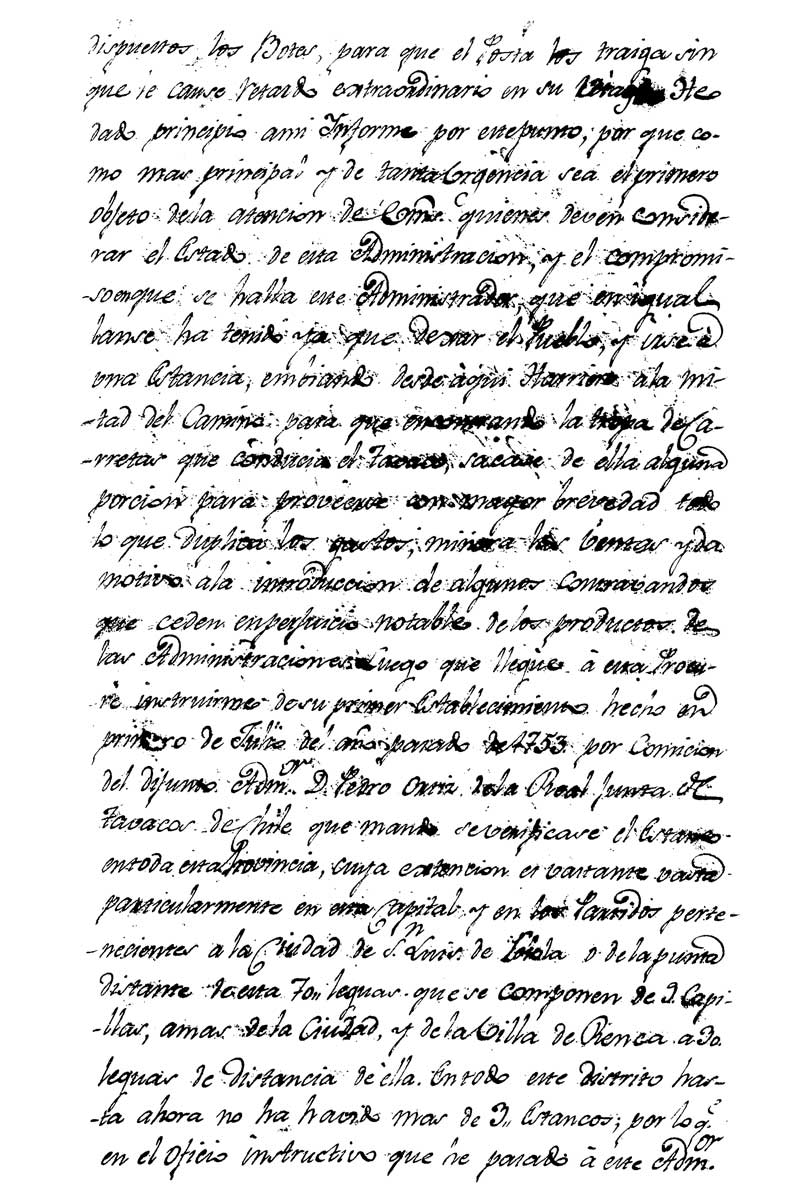 dispuestos, los Botes, para que el Posta los traiga sin
que se cause retardo extraordinario en su He
dado principio ami Informe por estepunto; por que co-
mo mas principal y de tanta Urgencia sea el primero
objeto dela atencion de Vms. quienes deven conside-
rar el Estado de esta Administracion, y el compromi-
-soenque se halla este Administrador, que en igual
lanse ha tenido ya que dexar el Pueblo, y irse à
una Estancia, embiando desde àqui Harriero ala mi-
-tad del Camino para que encontrando la tropa de Ca-
-rretas que conducia el Tavaco, sacase de ella alguna
porcion para proveerse con mayor brevedad todo
lo que duplica los gastos, minora las Ventas y da
motivo ala introduccion de algunos Contravandos
que ceden enperjuicio notable delos productos de
las Administraciones. Luego que lleguè à esta Procu-
rè instruirme de su primer Establecimiento hecho en
primero de Julio del año pasado de 1753 por Comicion
del difunto Admor. D. Pedro Ortiz dela Real Junta de
Tavacos de Chile que mandò severificase el Estanco
entoda esta Provincia, cuya extencion es vastante vasta
particularmente en esta Capital y en los Partidos perte-
-necientes a la Ciudad de Sn. Luis de Loiola o de la punta
distante de esta 70,, leguas que se componen de 9. Capi-
-llas, amas dela Ciudad, y de la Villa de Renca a 30.
leguas de distancia de ella. Entodo este distrito has-
-ta ahora no ha havido mas de 3,, Estancos; por lo q.e
en el Oficio instructivo que he pasado à este Admor.